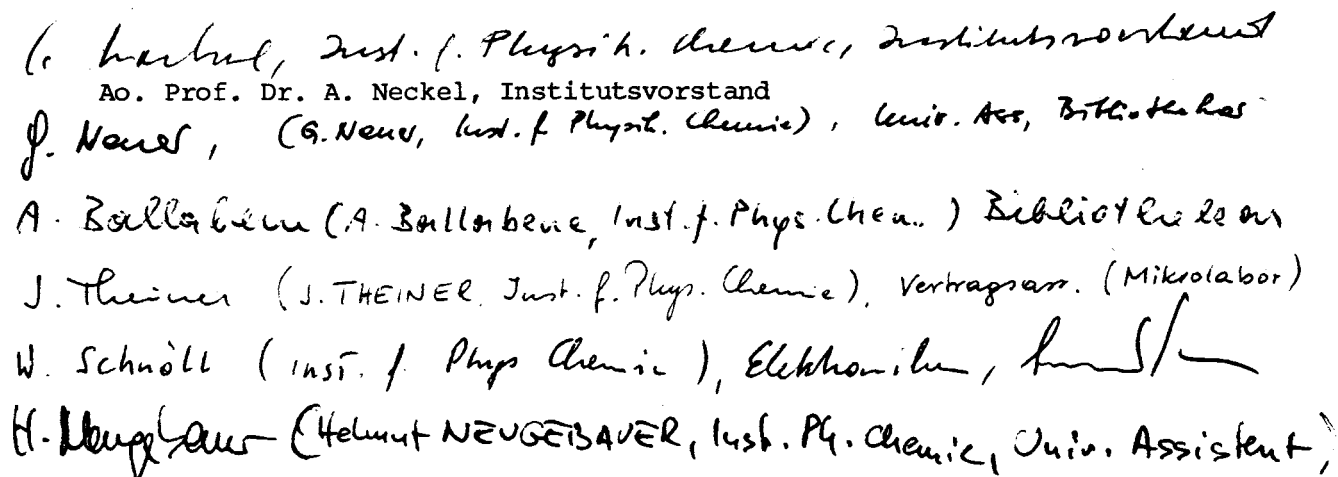 Neckel, Inst. f. Physik. Chemie, Institutsvorstand
Ao. Prof. Dr. A. Neckel, Institutsvorstand
G. Neuer, (G. Neuer, Inst. f. Physik. Chemie), Univ. Ass, Bibliothekar
A. Ballabene (A. Ballabene, Inst. f. Phys. Chem.) Bibliothekar
J. Theiner (J. THEINER, Inst. f. Phys. Chemie), Vertragsass. (Mikrolabor)
W. Schnöll (Inst. f. Phys Chemie), Elektroniker,
H. Neugebauer (Helmut NEUGEBAUER, Inst. Ph. Chemie, Univ. Assistent,